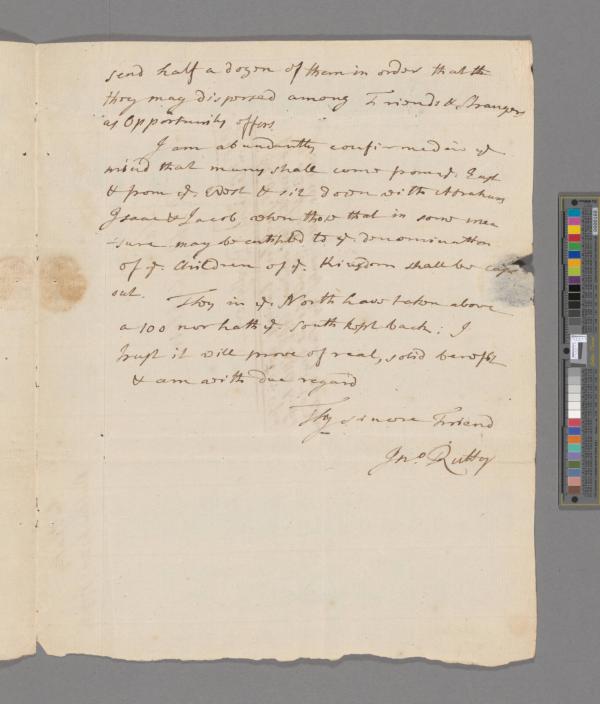 send half a dozen of them in order that th
they may dispersed among Friends & Strangers
as Opportunity offers.
I am abundantly confirmed in ye
mind that many shall come from ye. East
& from ye. West & sit down with Abraham
Isaac & Jacob, when those that in some mea
-sure may be entitled to ye. denomination
of ye. Children of ye. Kingdom shall be cast
out. They in ye. North have taken above
a 100 nor hath ye. South kept back; I
trust it will prove of real, solid benefit
& am with due regard
Thy sincere Friend
Jno. Rutty